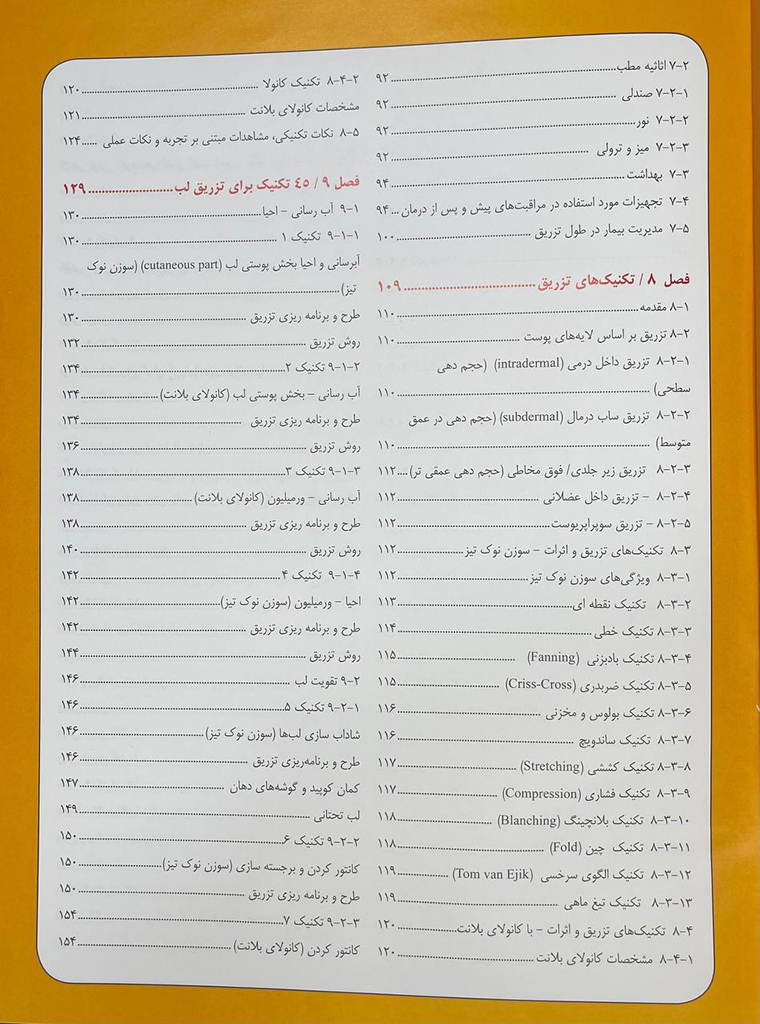 ۷-۲ اثاثیه مطب ۹۲
۷-۲-۱ صندلی ۹۲
۷-۲-۲ نور ۹۲
۷-۲-۳ میز و ترولی ۹۲
۷-۳ بهداشت ۹۴
۷-۴ تجهیزات مورد استفاده در مراقبت‌های پیش و پس از درمان ۹۴
۷-۵ مدیریت بیمار در طول تزریق ۱۰۰
فصل ۸ / تکنیک‌های تزریق ۱۰۹
۸-۱ مقدمه ۱۱۰
۸-۲ تزریق بر اساس لایه‌های پوست ۱۱۰
۸-۲-۱ تزریق داخل درمی (intradermal) (حجم دهی
سطحی) ۱۱۰
۸-۲-۲ تزریق ساب درمال (subdermal) (حجم دهی در عمق
متوسط) ۱۱۰
۸-۲-۳ تزریق زیر جلدی/ فوق مخاطی (حجم دهی عمقی تر) ۱۱۲
۸-۲-۴ – تزریق داخل عضلانی ۱۱۲
۸-۲-۵ – تزریق سوپراپریوست ۱۱۲
۸-۳ تکنیک‌های تزریق و اثرات – سوزن نوک تیز ۱۱۲
۸-۳-۱ ویژگی‌های سوزن نوک تیز ۱۱۲
۸-۳-۲ تکنیک نقطه ای ۱۱۳
۸-۳-۳ تکنیک خطی ۱۱۴
۸-۳-۴ تکنیک بادبزنی (Fanning) ۱۱۵
۸-۳-۵ تکنیک ضربدری (Criss-Cross) ۱۱۵
۸-۳-۶ تکنیک بولوس و مخزنی ۱۱۶
۸-۳-۷ تکنیک ساندویچ ۱۱۶
۸-۳-۸ تکنیک کششی (Stretching) ۱۱۷
۸-۳-۹ تکنیک فشاری (Compression) ۱۱۷
۸-۳-۱۰ تکنیک بلانچینگ (Blanching) ۱۱۸
۸-۳-۱۱ تکنیک چین (Fold) ۱۱۸
۸-۳-۱۲ تکنیک الگوی سرخسی (Tom van Ejik) ۱۱۹
۸-۳-۱۳ تکنیک تیغ ماهی ۱۱۹
۸-۴ تکنیک‌های تزریق و اثرات – با کانولای بلانت ۱۲۰
۸-۴-۱ مشخصات کانولای بلانت ۱۲۰
۸-۴-۲ تکنیک کانولا ۱۲۰
مشخصات کانولای بلانت ۱۲۱
۸-۵ نکات تکنیکی، مشاهدات مبتنی بر تجربه و نکات عملی ۱۲۴
فصل ۹ / ٤٥ تکنیک برای تزریق لب ۱۲۹
۹-۱ آب رسانی – احیا ۱۳۰
۹-۱-۱ تکنیک ۱ ۱۳۰
آبرسانی و احیا بخش پوستی لب (cutaneous part) (سوزن نوک
تیز) ۱۳۰
طرح و برنامه ریزی تزریق ۱۳۰
روش تزریق ۱۳۲
۹-۱-۲ تکنیک ۲ ۱۳۴
آب رسانی – بخش پوستی لب (کانولای بلانت) ۱۳۴
طرح و برنامه ریزی تزریق ۱۳۴
روش تزریق ۱۳۶
۹-۱-۳ تکنیک ۳ ۱۳۸
آب رسانی – ورمیلیون (کانولای بلانت) ۱۳۸
طرح و برنامه ریزی تزریق ۱۳۸
روش تزریق ۱۴۰
۹-۱-۴ تکنیک ۴ ۱۴۲
احیا – ورمیلیون (سوزن نوک تیز) ۱۴۲
طرح و برنامه ریزی تزریق ۱۴۲
روش تزریق ۱۴۴
۹-۲ تقویت لب ۱۴۶
۹-۲-۱ تکنیک ۵ ۱۴۶
شاداب سازی لب‌ها (سوزن نوک تیز) ۱۴۶
طرح و برنامه‌ریزی تزریق ۱۴۶
کمان کوپید و گوشه‌های دهان ۱۴۷
لب تحتانی ۱۴۹
۹-۲-۲ تکنیک ۶ ۱۵۰
کانتور کردن و برجسته سازی (سوزن نوک تیز) ۱۵۰
طرح و برنامه ریزی تزریق ۱۵۰
۹-۲-۳ تکنیک ۷ ۱۵۴
کانتور کردن (کانولای بلانت) ۱۵۴